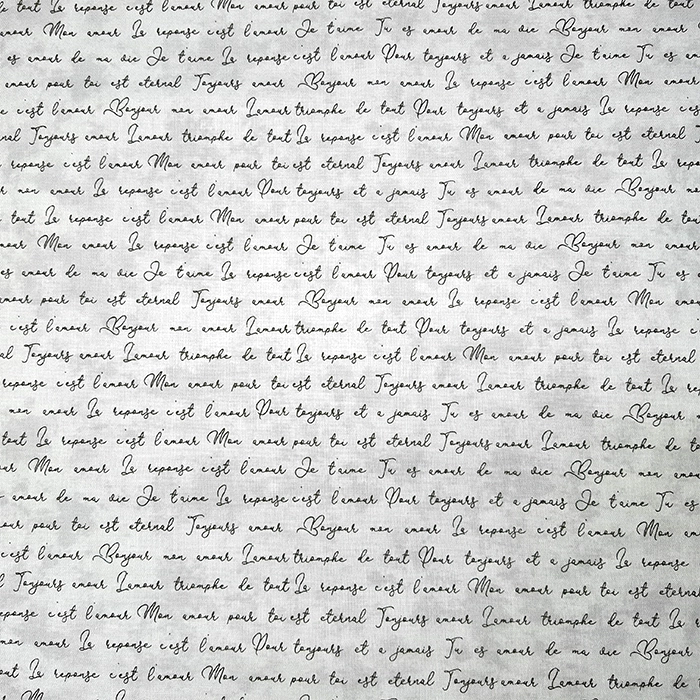 tout La reponse c'est l'amour Mon amour pour toi est eternal Toujours amour L'amour triomphe de tout
amour Mon amour La reponse c'est l'amour Je t'aime Tu es amour de ma vie Bonjour mon amour
es amour de ma vie Je t'aime La reponse c'est l'amour Pour toujours et a jamais Je t'aime Tu es
amour pour toi est eternal Toujours amour Bonjour mon amour La reponse c'est l'amour Mon amour
c'est l'amour Bonjour mon amour L'amour triomphe de tout Pour toujours et a jamais La reponse
Toujours amour L'amour triomphe de tout La reponse c'est l'amour Mon amour pour toi est eternal
reponse c'est l'amour Mon amour pour toi est eternal Toujours amour L'amour triomphe de tout La
mon amour La reponse c'est l'amour Pour toujours et a jamais Tu es amour de ma vie Bonjour
tout La reponse c'est l'amour Mon amour pour toi est eternal Toujours amour L'amour triomphe de
Mon amour La reponse c'est l'amour Je t'aime Tu es amour de ma vie Bonjour mon amour
es amour de ma vie Je t'aime La reponse c'est l'amour Pour toujours et a jamais Je t'aime Tu es
amour pour toi est eternal Toujours amour Bonjour mon amour La reponse c'est l'amour Mon amour
c'est l'amour Bonjour mon amour L'amour triomphe de tout Pour toujours et a jamais La reponse
Toujours amour L'amour triomphe de tout La reponse c'est l'amour Mon amour pour toi est eternal
reponse c'est l'amour Mon amour pour toi est eternal Toujours amour L'amour triomphe de tout La
mon amour La reponse c'est l'amour Pour toujours et a jamais Tu es amour de ma vie Bonjour
tout La reponse c'est l'amour Mon amour pour toi est eternal Toujours amour L'amour triomphe de
Mon amour La reponse c'est l'amour Je t'aime Tu es amour de ma vie Bonjour mon
amour de ma vie Je t'aime La reponse c'est l'amour Pour toujours et a jamais Je t'aime Tu es
pour toi est eternal Toujours amour Bonjour mon amour La reponse c'est l'amour Mon
c'est l'amour Bonjour mon amour L'amour triomphe de tout Pour toujours et a jamais La reponse
Toujours amour L'amour triomphe de tout La reponse c'est l'amour Mon amour pour toi est
c'est l'amour Mon amour pour toi est eternal Toujours amour L'amour triomphe de tout La
mon amour La reponse c'est l'amour Pour toujours et a jamais Tu es amour de ma vie Bonjour
La reponse c'est l'amour Mon amour pour toi est eternal Toujours amour L'amour triomphe de